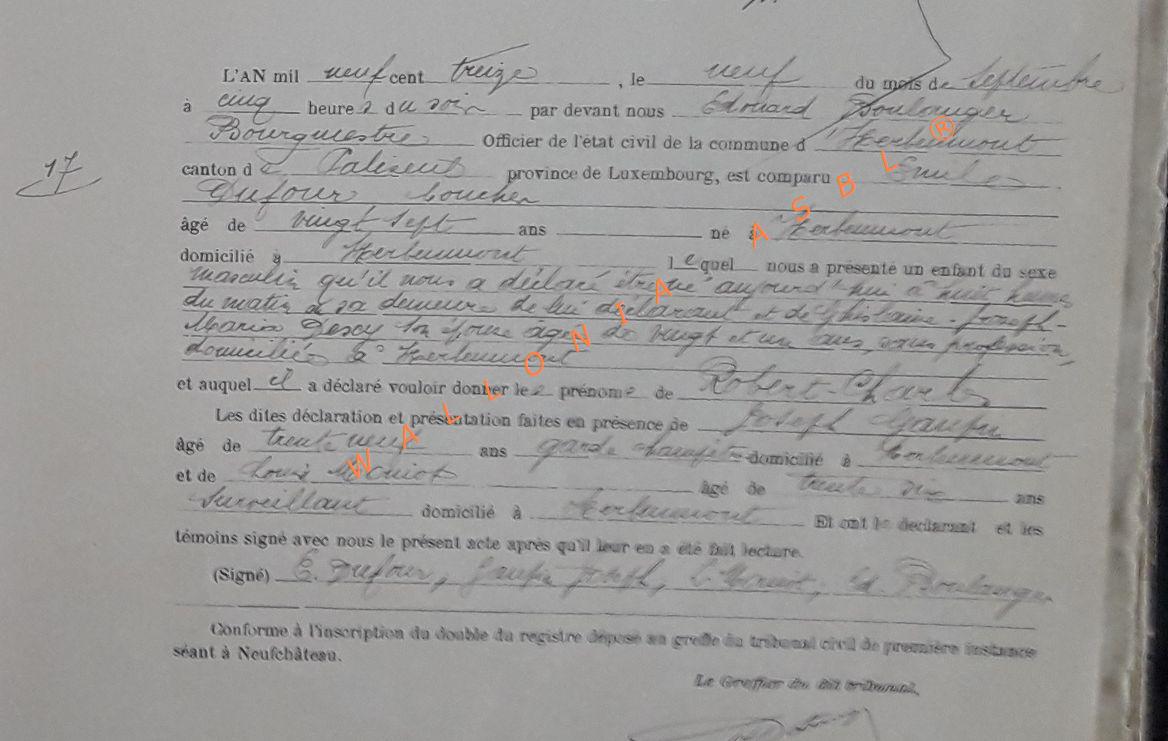 L'AN mil neuf cent treize, le neuf du mois de Septembre
à cinq heures du soir par devant nous Edouard Boulanger
Bourgmestre Officier de l'état civil de la commune d'Herbeumont
17
canton de Paliseul province de Luxembourg, est comparu Emile
Dufour boucher
âgé de vingt sept ans né à Herbeumont
domicilié à Herbeumont lequel nous a présenté un enfant du sexe
masculin qu'il nous a déclaré être né aujourd'hui à huit heures
du matin à sa demeure de lui déclarant et de Ghislaine-Joseph-
Maria son épouse agée de vingt et un ans, sans profession,
domiciliés à Herbeumont
et auquel il a déclaré vouloir donner les prénoms de Robert-Charles
Les dites déclaration et présentation faites en présence de Joseph
âgé de trente neuf ans garde champêtre domicilié à Herbeumont
et de Louis âgé de trente six ans
Surveillant domicilié à Herbeumont Et ont le déclarant et les
témoins signé avec nous le présent acte après qu'il leur en a été fait lecture.
(Signé) E. Dufour, Joseph, Ed. Boulanger
Conforme à l'inscription du double du registre déposé au greffe du tribunal civil de première instance
séant à Neufchâteau.
Le Greffier du dit tribunal,
WALLONIA ASBL ®